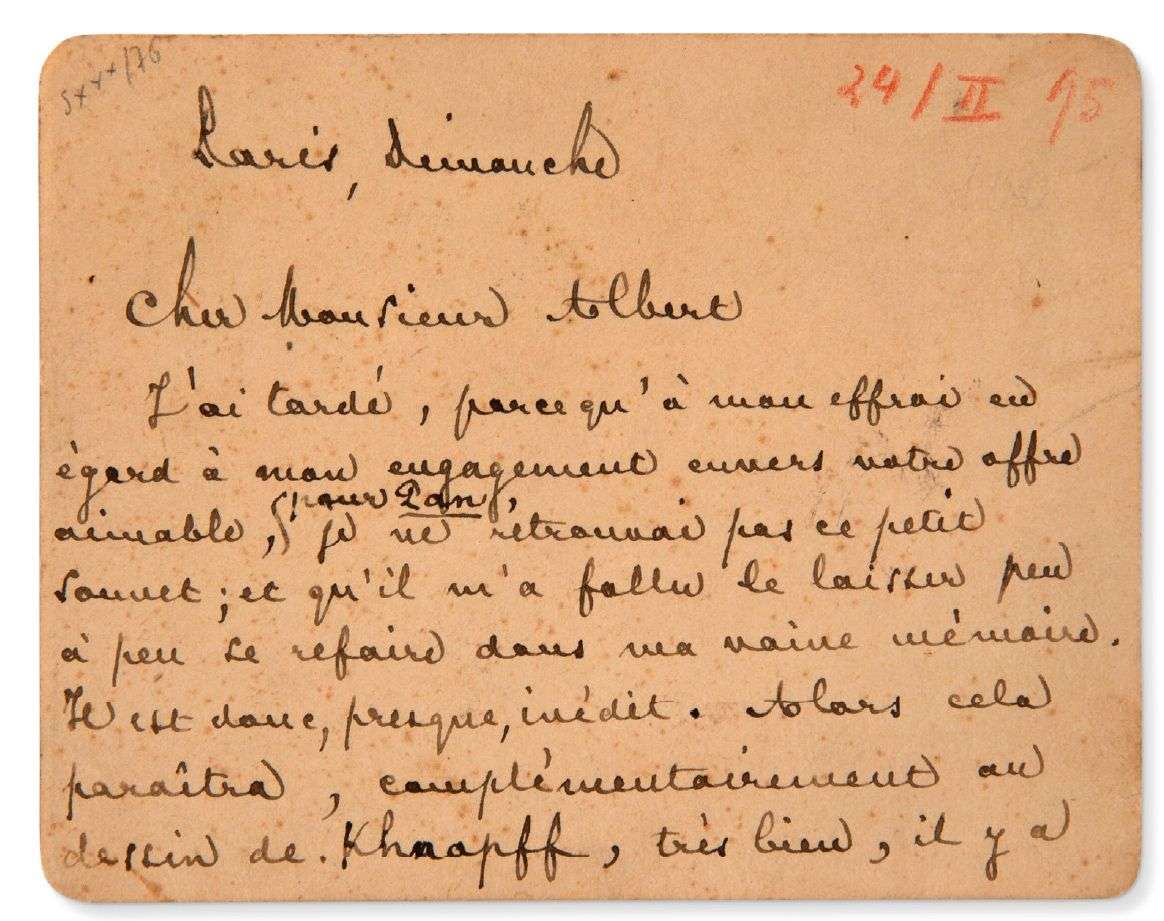 24/II 95
Paris, dimanche
Cher Monsieur Albert
J'ai tardé, parcequ'à mon effroi eu
égard à mon engagement envers votre offre
pour Pan,
aimable, je ne retrouvai pas ce petit
sonnet; et qu'il m'a fallu le laisser peu
à peu se refaire dans ma vaine mémoire.
Il est donc, presque, inédit. Alors cela
paraîtra, complémentairement au
dessin de Khnopff, très bien, il y a